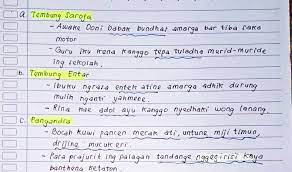 a. Tembung Saroja
- Awake Doni babak bundhas amarga bar tiba saka
motor
- Guru iku kena kanggo tepa tuladha merid-muride
ing sekolah.
b. Tembung Entar
- Ibuku ngrasa entek atine amarga adhik durung
mulih nganti yahmene.
- Rina mae adol ayu kanggo nyedhaki wong lanang.
c. Panyandra
- Bocah kuwi pancen merak ati, untune miji timun,
drijine mucuk eri.
- Para prajurit ing palagan tandange nggegirisi kaya
bantheng ketaton.